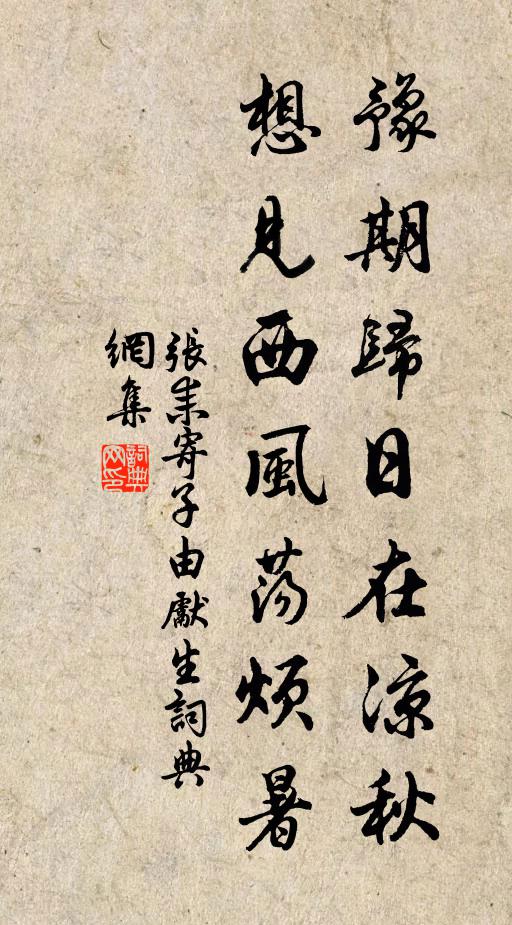 豫期歸日在涼秋
想見西風荡煩暑
張耒寄子由獻生詞典
網集
詞典
网印